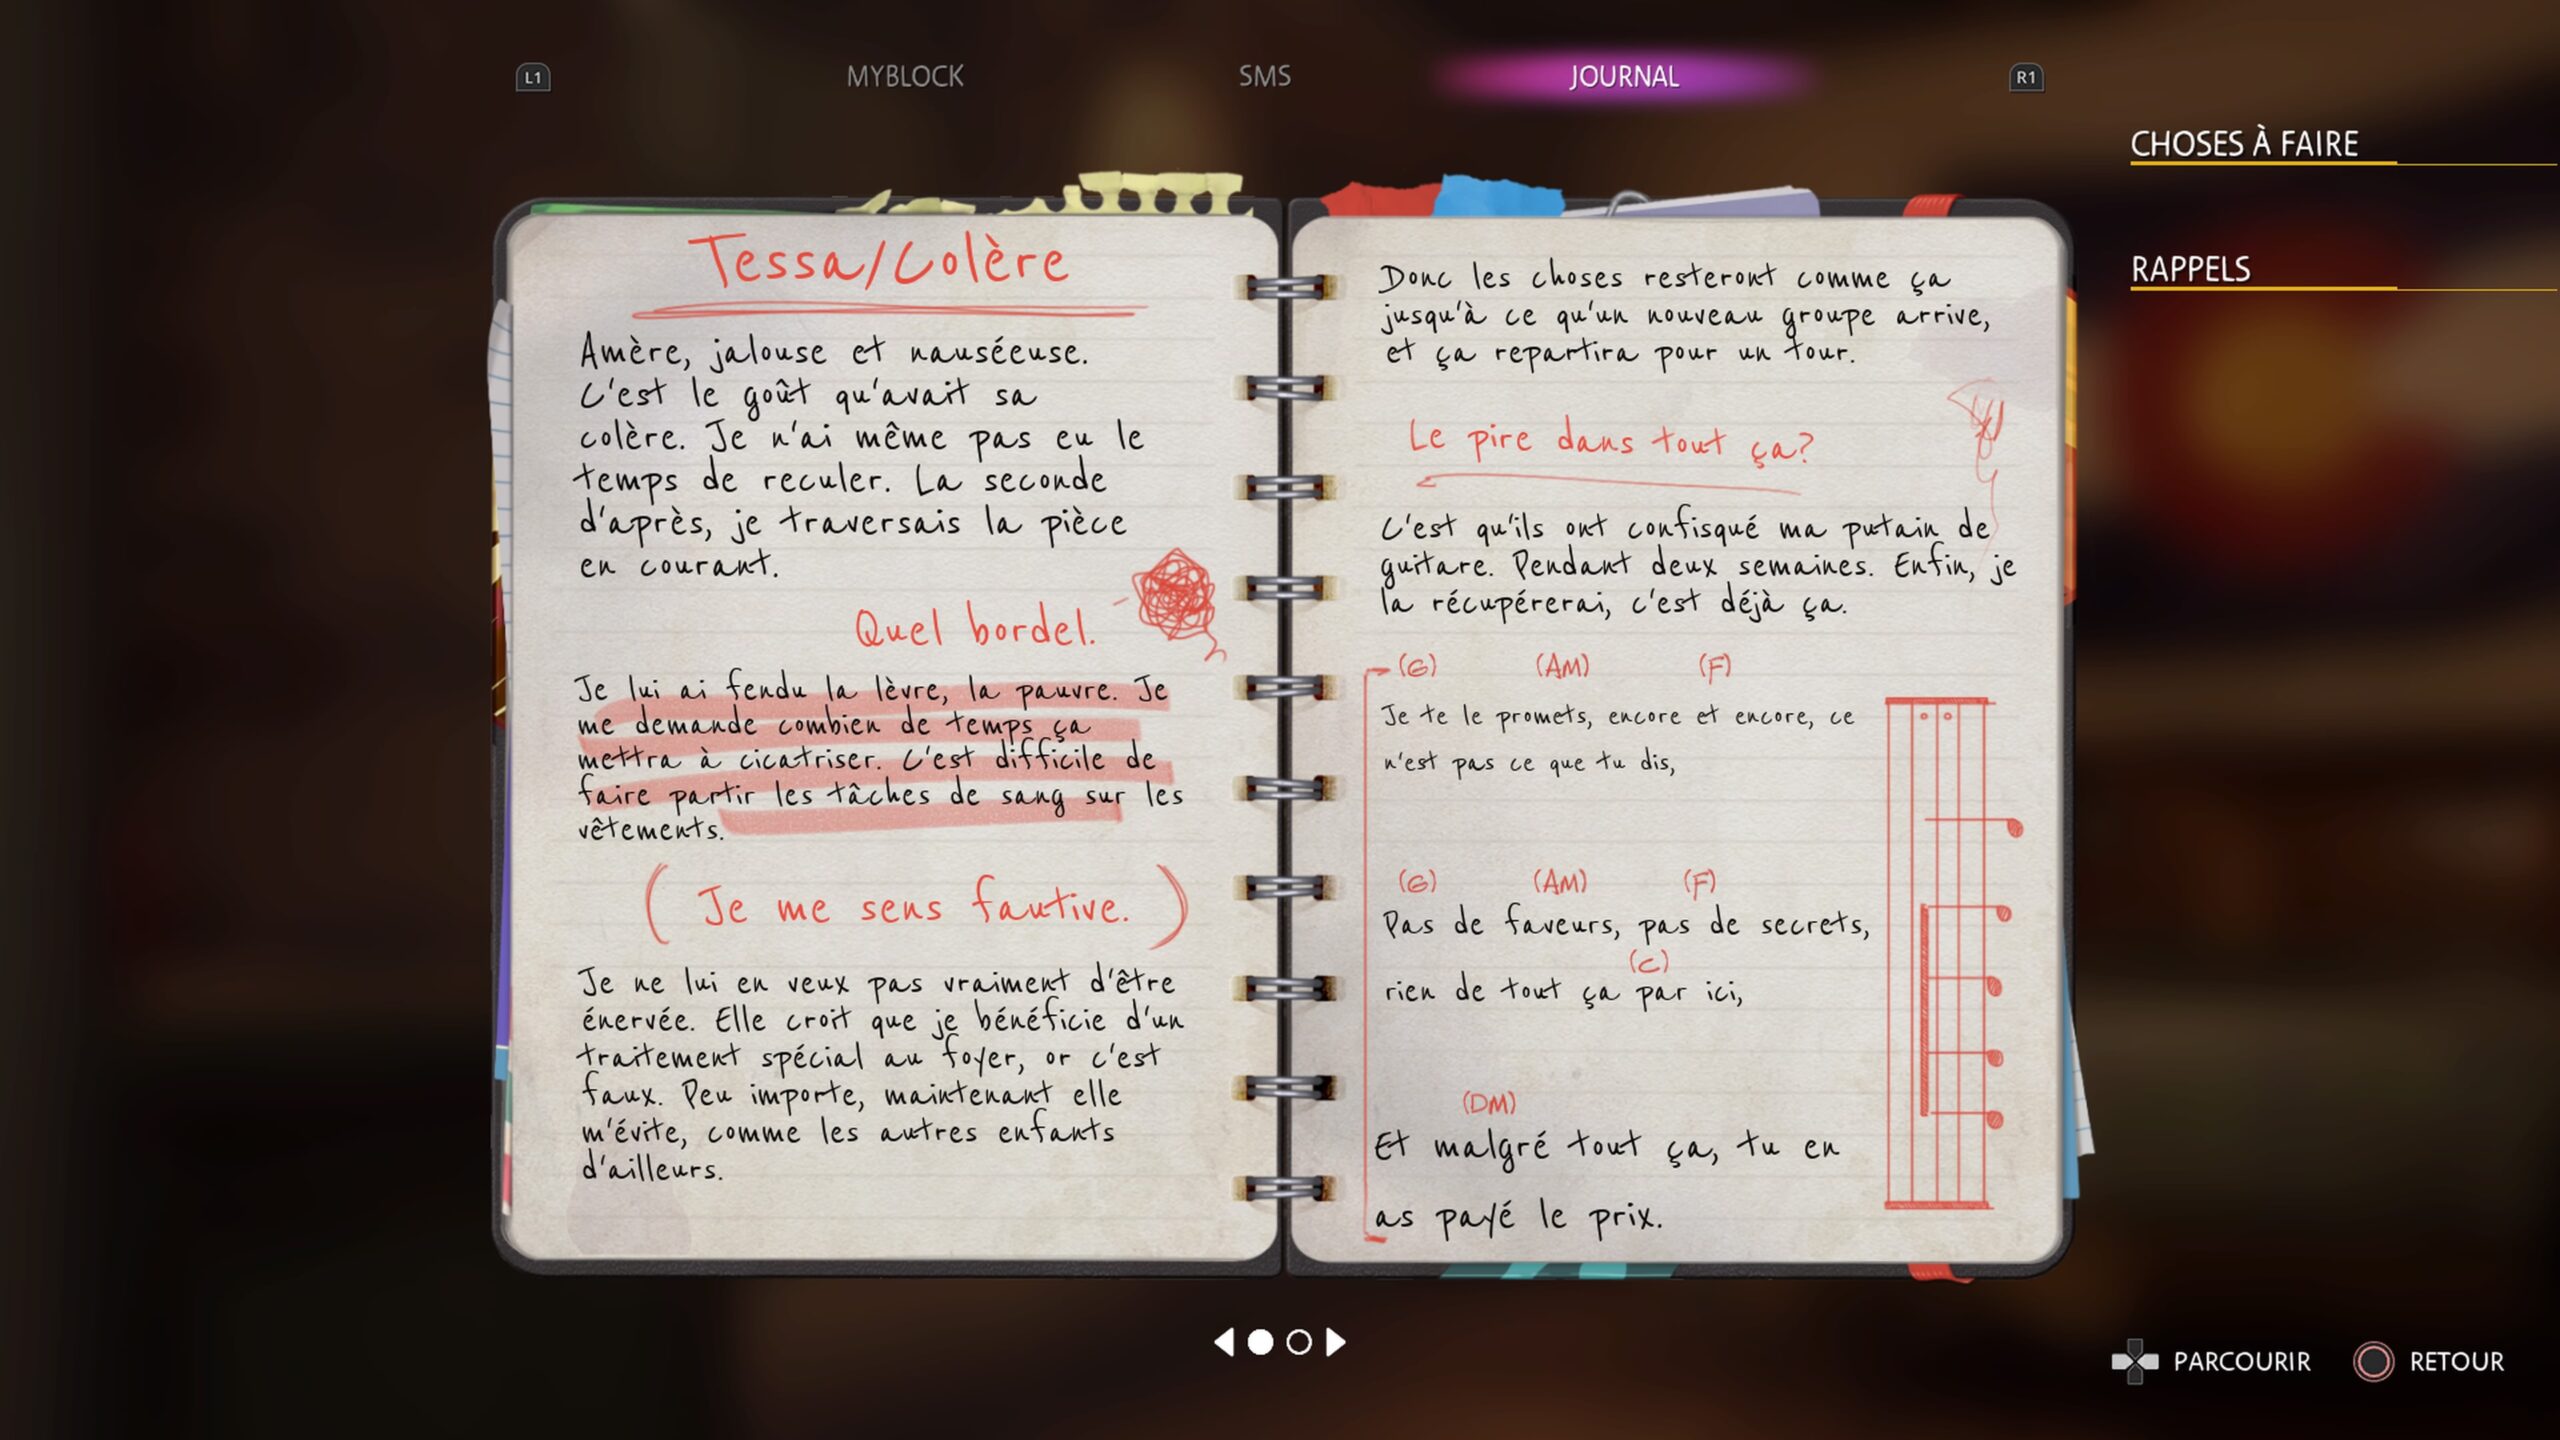 L1
MYBLOCK
SMS
JOURNAL
R1
CHOSES À FAIRE
RAPPELS
Tessa/Colère
Amère, jalouse et nauséeuse.
C'est le goût qu'avait sa
colère. Je n'ai même pas eu le
temps de reculer. La seconde
d'après, je traversais la pièce
en courant.
Quel bordel.
Je lui ai fendu la lèvre, la pauvre. Je
me demande combien de temps ça
mettra à cicatriser. C'est difficile de
faire partir les tâches de sang sur les
vêtements.
( Je me sens fautive. )
Je ne lui en veux pas vraiment d'être
énervée. Elle croit que je bénéficie d'un
traitement spécial au foyer, or c'est
faux. Peu importe, maintenant elle
m'évite, comme les autres enfants
d'ailleurs.
Donc les choses resteront comme ça
jusqu'à ce qu'un nouveau groupe arrive,
et ça repartira pour un tour.
Le pire dans tout ça?
C'est qu'ils ont confisqué ma putain de
guitare. Pendant deux semaines. Enfin, je
la récupérerai, c'est déjà ça.
(G) (AM) (F)
Je te le promets, encore et encore, ce
n'est pas ce que tu dis,
(G) (AM) (F)
Pas de faveurs, pas de secrets,
(C)
rien de tout ça par ici,
(DM)
Et malgré tout ça, tu en
as payé le prix.
PARCOURIR
RETOUR